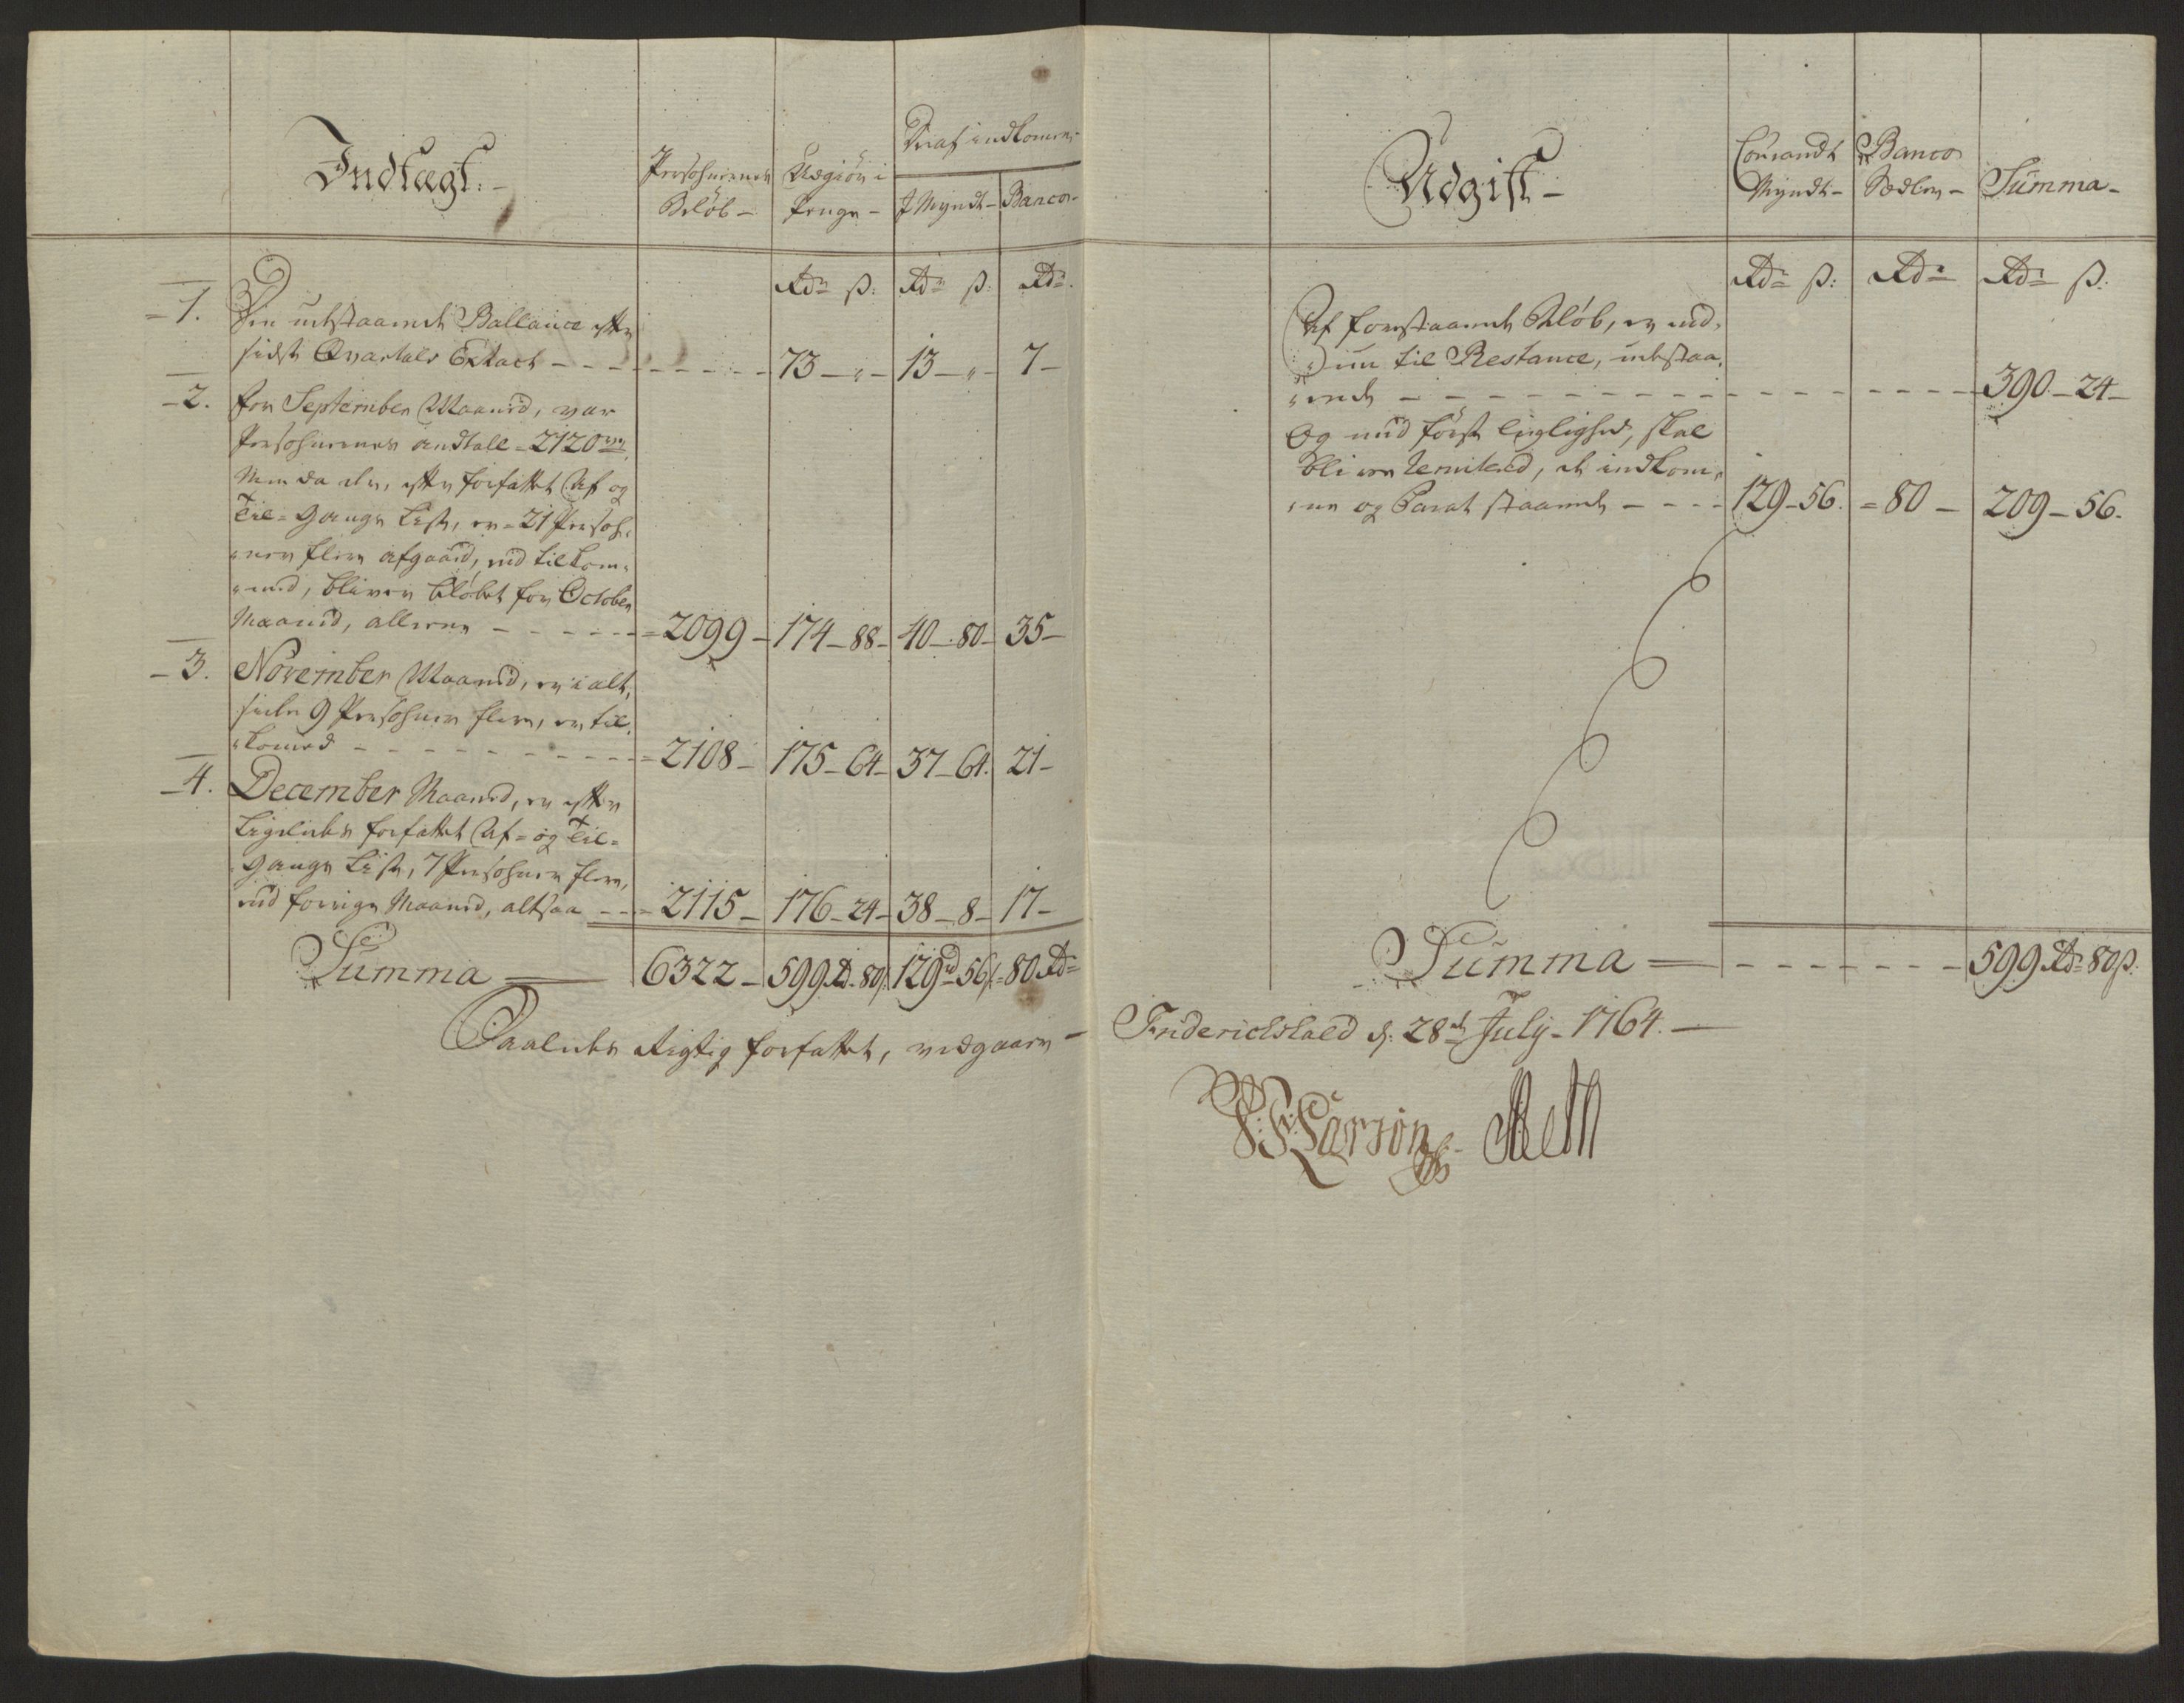 Indtægt.-
Persohnernes
Beløb-
Udgiør i
Penge-
Deraf indkomen-
J Myndt-
Banco-
Rdr ß: Rdr ß: Rdr
1. Den udestaaende Ballance efter
sidste Qvartals Extract - - - 73 - „ - 13 - „ - 7 -
2. For September Maaned, var
Persohnernes andtall = 2120ve,
Men da der, efter forfattet Af og
Til-Gangs List, er = 21 Persoh-
„ner flere afgaaed, end tilkom-
„med, bliver beløbet for October
Maaned, alleene - - - = 2099 - 174 - 88 - 40 - 80 - 35 -
3. November Maaned, er i alt,
siden 9 Persohner flere, er til-
„komed - - - = 2108 - 175 - 64 - 37 - 64. 21 -
4. December Maaned, er efter
Ligeledes forfattet Af- og Til-
Gangs List, 7 Persohner flere,
end forrige Maaned, altsaa - - - 2115 - 176 - 24 - 38 - 8 - 17 -
Summa = 6322 - 599 Rd. 80ß. 129rd 56ß = 80 Rdr
Saaledes Rigtig forfattet, vedgaaes -
Udgift -
Courandt
Myndt -
Banco
Sedler -
Summa -
Rdr ß: Rdr Rdr ß:
Af forestaaende Beløb, er end-
„nu til Restance, udestaa-
„ende - - - 390 - 24 -
Og med først leylighed, skal
blive remiterd, de indkom-
„ne og Parat staaende - - - 129 - 56. = 80 - 209 - 56.
Summa = - - - 599 Rdr 80ß.
Friderichshald d: 28de July - 1764. -